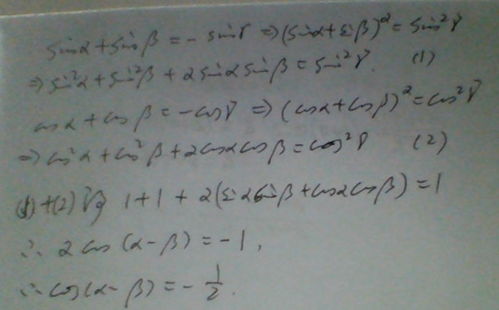 sinα+sinβ=-sinγ⇒(sinα+sinβ)²=sin²γ
⇒sin²α+sin²β+2sinαsinβ=sin²γ. (1)
cosα+cosβ=-cosγ⇒(cosα+cosβ)²=cos²γ
⇒cos²α+cos²β+2cosαcosβ=cos²γ (2)
(1)+(2)得 1+1+2(sinαsinβ+cosαcosβ)=1
∴2cos(α-β)=-1,
∴cos(α-β)=-1/2.